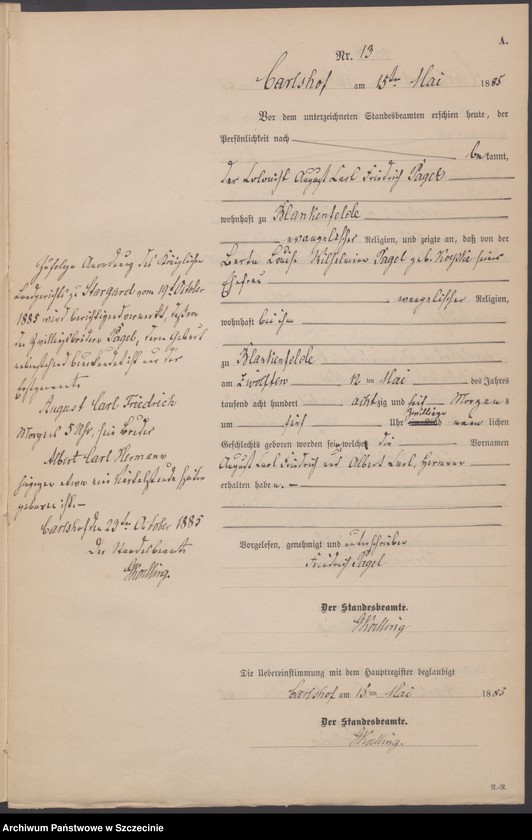 A.
Nr. 13
Carlshof am 15ten Mai 1885
Vor dem unterzeichneten Standesbeamten erschien heute, der
Persönlichkeit nach
bekannt,
der Colonist August Carl Friedrich Pagel
wohnhaft zu Blankenfelde
evangelischer Religion, und zeigte an, daß von der
Louise Wilhelmine Pagel geb. seiner
Ehefrau
evangelischer Religion,
wohnhaft bei ihm
zu Blankenfelde
am zwölften 12ten Mai des Jahres
tausend acht hundert achtzig und fünf Morgens
um fünf Uhr Zwillinge männlichen
Geschlechts geboren worden seien, welche die Vornamen
August Carl Friedrich und Albert Carl Hermann
erhalten haben. —
Vorgelesen, genehmigt und unterschrieben
Friedrich Pagel
Der Standesbeamte.
Die Uebereinstimmung mit dem Hauptregister beglaubigt
Carlshof am 15ten Mai 1885
Der Standesbeamte.
R.-R.
Zufolge Anordnung des Königlichen
Landgerichts zu Stargard vom 19. October
1885 wird berichtigend vermerkt, daß von
den Zwillingsbrüdern Pagel, deren Geburt
nebenstehend beurkundet ist nur der
erstgenannte
August Carl Friedrich
Morgens 5 Uhr, sein Bruder
Albert Carl Hermann
hingegen etwa eine Viertelstunde später
geboren ist. —
Carlshof den 29ten October 1885
Der Standesbeamte
Archiwum Państwowe w Szczecinie